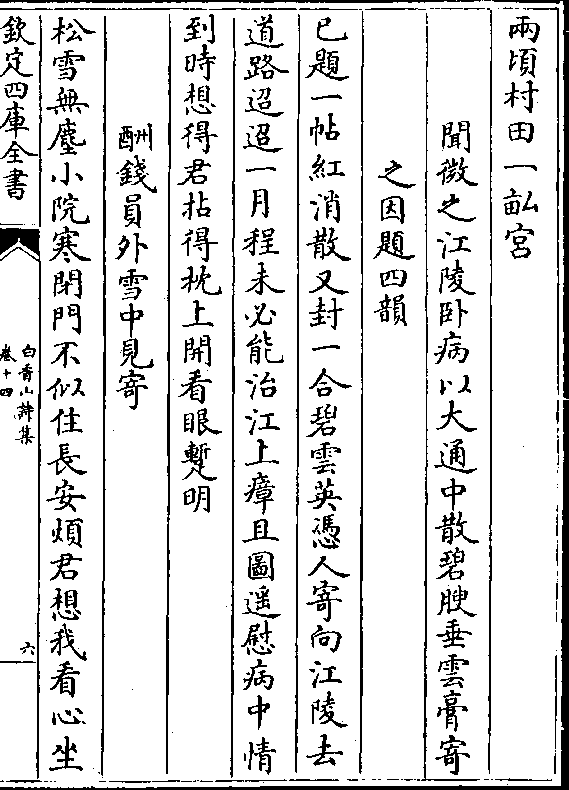 兩頃村田一畝宮
聞微之江陵卧病以大通中散碧腴垂雲膏寄
之因題四韻
已題一帖紅消散又封一合碧雲英憑人寄向江陵去
道路迢迢一月程未必能治江上瘴且圖遥慰病中情
到時想得君拈得枕上開看眼蹔明
酬錢員外雪中見寄
松雪無塵小院寒閉門不似住長安煩君想我看心坐
欽定四庫全書
白香山詩集
卷十四
六